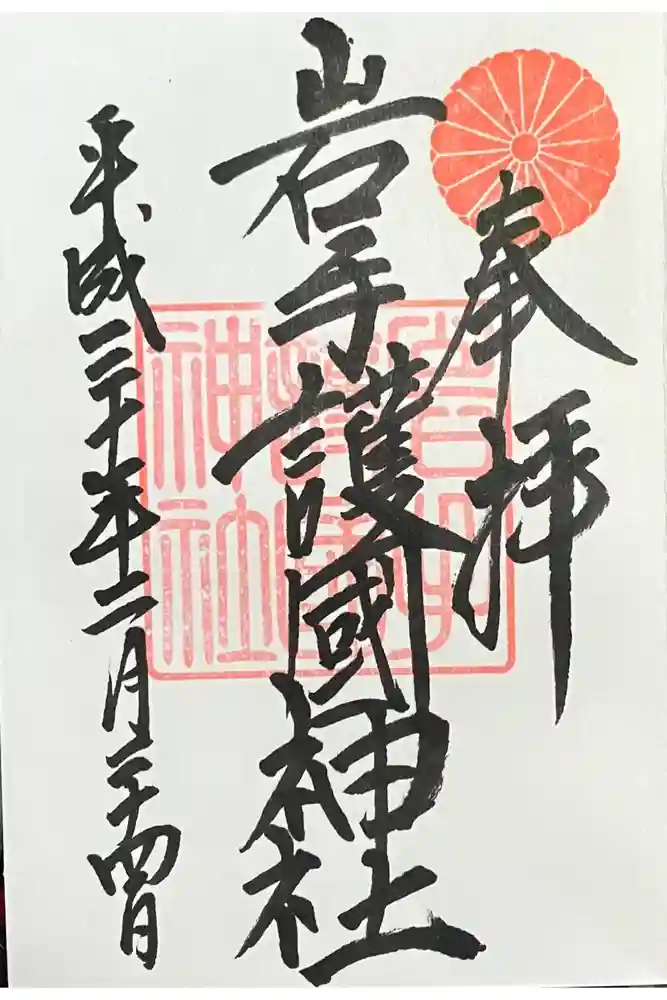 奉拝
岩手護國神社
平成三十年二月二十四日
岩手護國神社